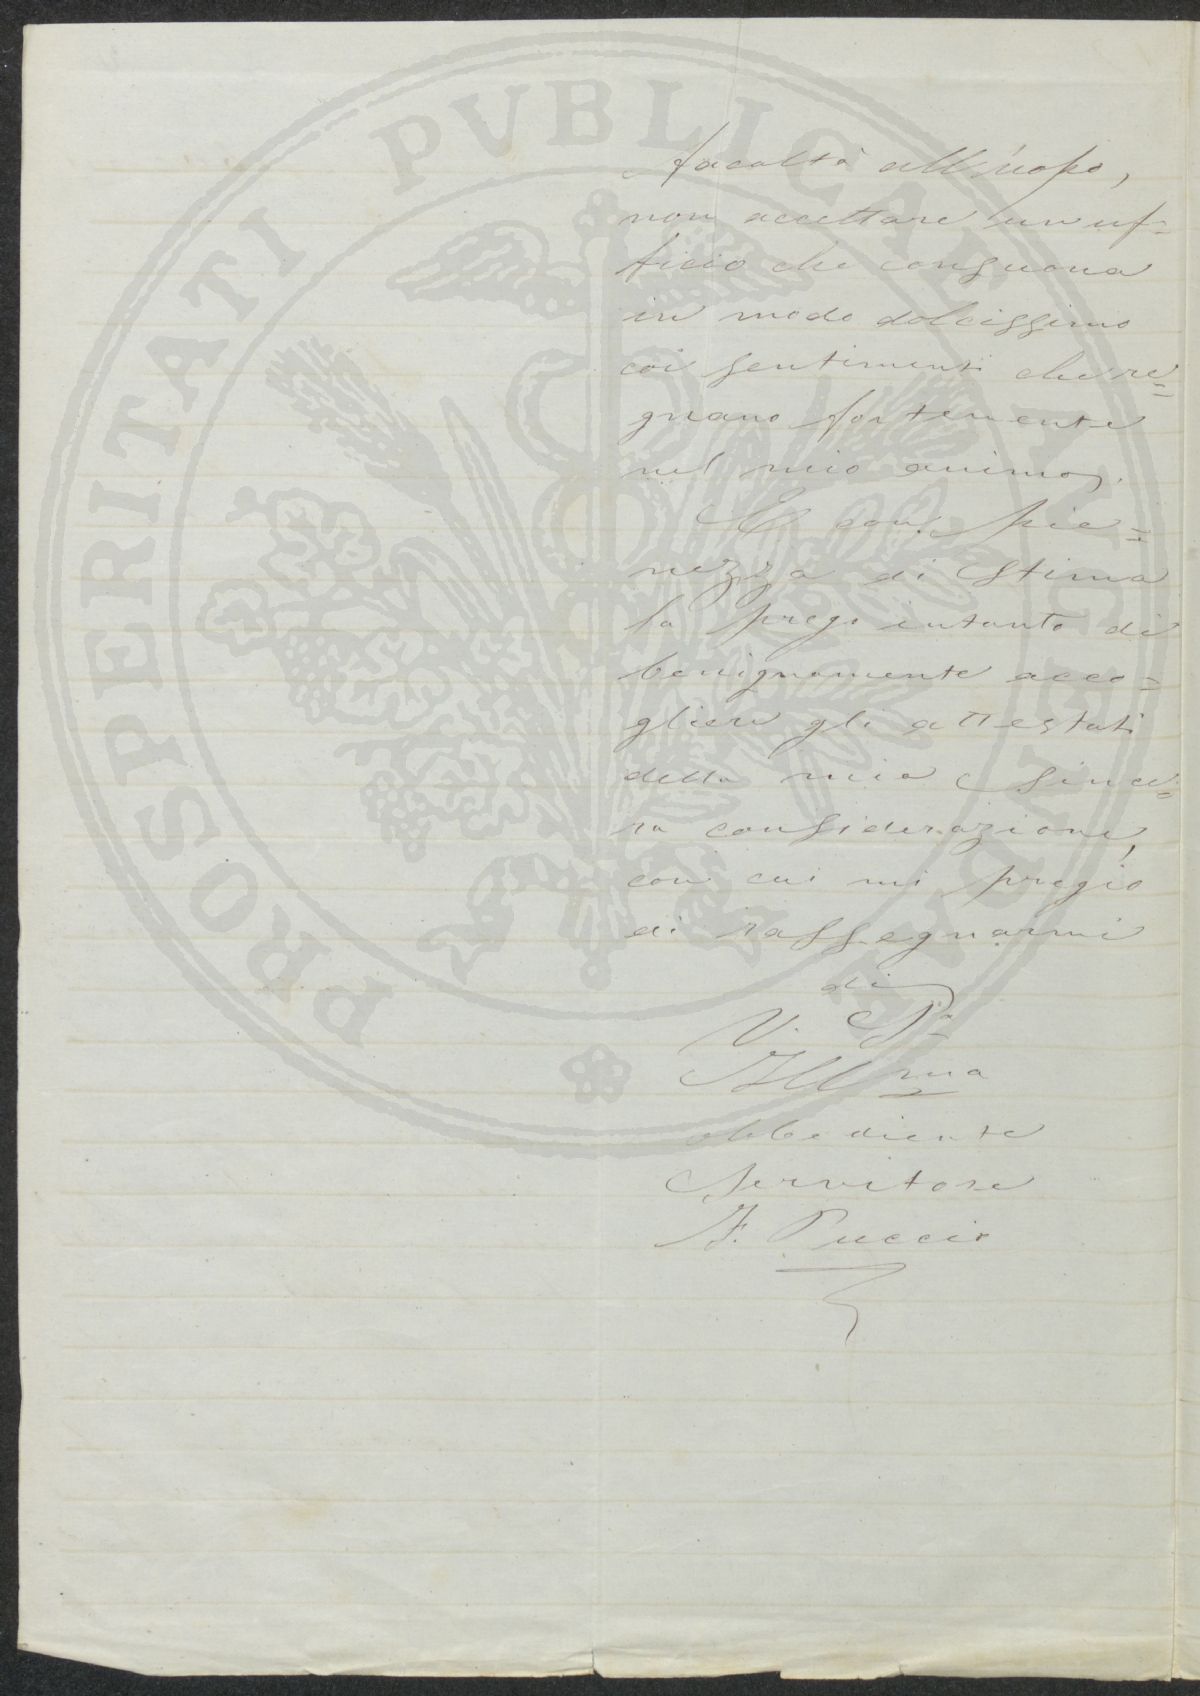 facoltà all'uopo,
non accettare un uf=
ficio che consuona
in modo dolcissimo
coi sentimenti che re=
gnano fortemente
nel mio animo.
E con pie=
nezza di stima
la prego intanto di
benignamente acco=
gliere gli attestati
della mia since=
ra considerazione,
con cui mi pregio
di rassegnarmi
di
V. S.a
Ill.ma
obbediente
Servitore
F. Puccio
PROSPERITATI PVBLICAE AVGENDAE